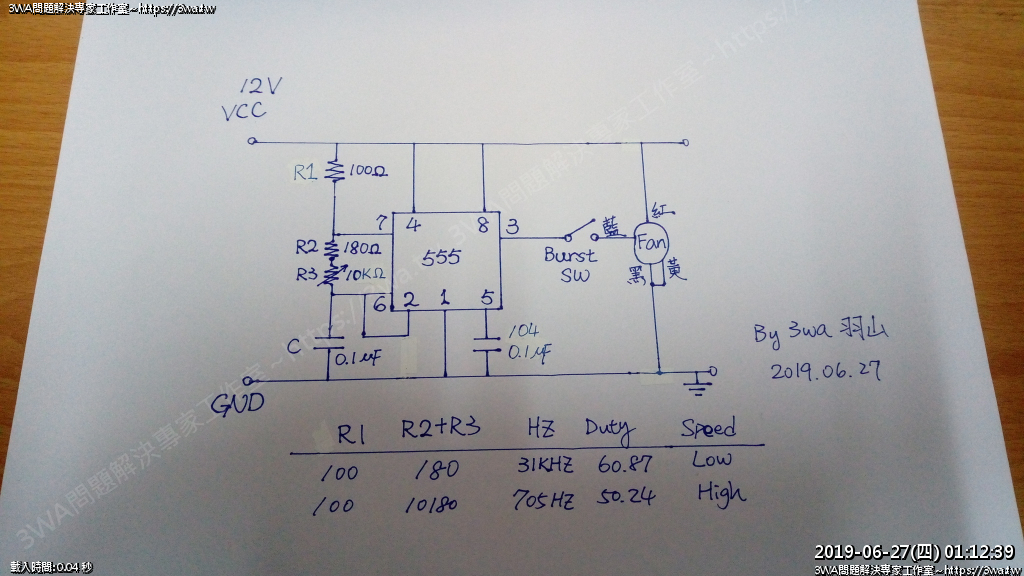 3WA問題解決專家工作室~https://3wa.tw
12V
VCC
R1 100Ω
7 4 8 3
紅
藍
Fan
R2 180Ω
555
Burst
SW
R3 10KΩ
黑 黃
6 2 1 5
C 0.1μF
104
0.1μF
By 3wa 羽山
2019.06.27
GND
R1 R2+R3 HZ Duty Speed
100 180 31KHZ 60.87 Low
100 10180 705HZ 50.24 High
3WA問題解決專家工作室~https://3wa.tw
2019-06-27(四) 01:12:39
載入時間:0.04 秒
3WA問題解決專家工作室~https://3wa.tw